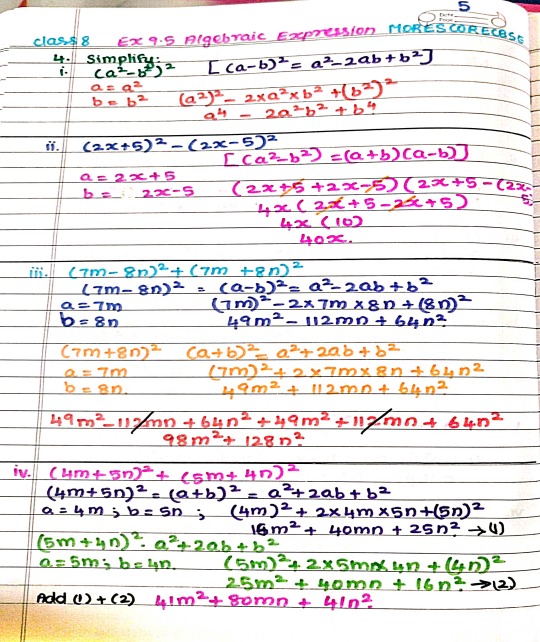 5
Date
Page
class 8 Ex 9.5 Algebraic Expression MORESCORECBSE
4. Simplify:
i. (a²-b²)² [(a-b)² = a²-2ab+b²]
a = a²
b = b² (a²)² - 2xa²xb² +(b²)²
a⁴ - 2a²b² + b⁴
ii. (2x+5)² - (2x-5)²
[(a²-b²) = (a+b)(a-b)]
a = 2x+5
b = 2x-5 (2x+5+2x-5)(2x+5-(2x-5)
4x(2x+5-2x+5)
4x(10)
40x.
iii. (7m-8n)²+(7m+8n)²
(7m-8n)² = (a-b)² = a²-2ab+b²
a=7m (7m)²-2x7mx8n+(8n)²
b=8n 49m²-112mn+64n²
(7m+8n)² (a+b)²=a²+2ab+b²
a=7m (7m)²+2x7mx8n+64n²
b=8n. 49m²+112mn+64n²
49m²-112mn+64n²+49m²+112mn+64n²
98m²+128n².
iv. (4m+5n)² + (5m+4n)²
(4m+5n)² = (a+b)² = a²+2ab+b²
a=4m; b=5n; (4m)²+2x4mx5n+(5n)²
16m²+40mn+25n². →(1)
(5m+4n)². a²+2ab+b²
a=5m; b=4n. (5m)²+2x5mx4n+(4n)²
25m²+40mn+16n². →(2)
Add (1)+(2) 41m²+80mn+41n².